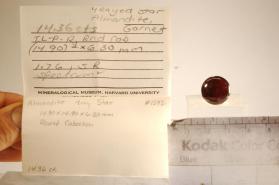 4 rayed star
Almandite,
14.36 cts Garnet
IL-P-R, Rnd Cab
(14.90)² x 6.30 mm
1.76, S.R.
Spectrum
MINERALOGICAL MUSEUM, HARVARD UNIVERSITY
Almandite 4 ray Star
14.90 x 14.90 x 6.30 mm
Round Cabochon
14.36 ct
Kodak Color Co
Blue